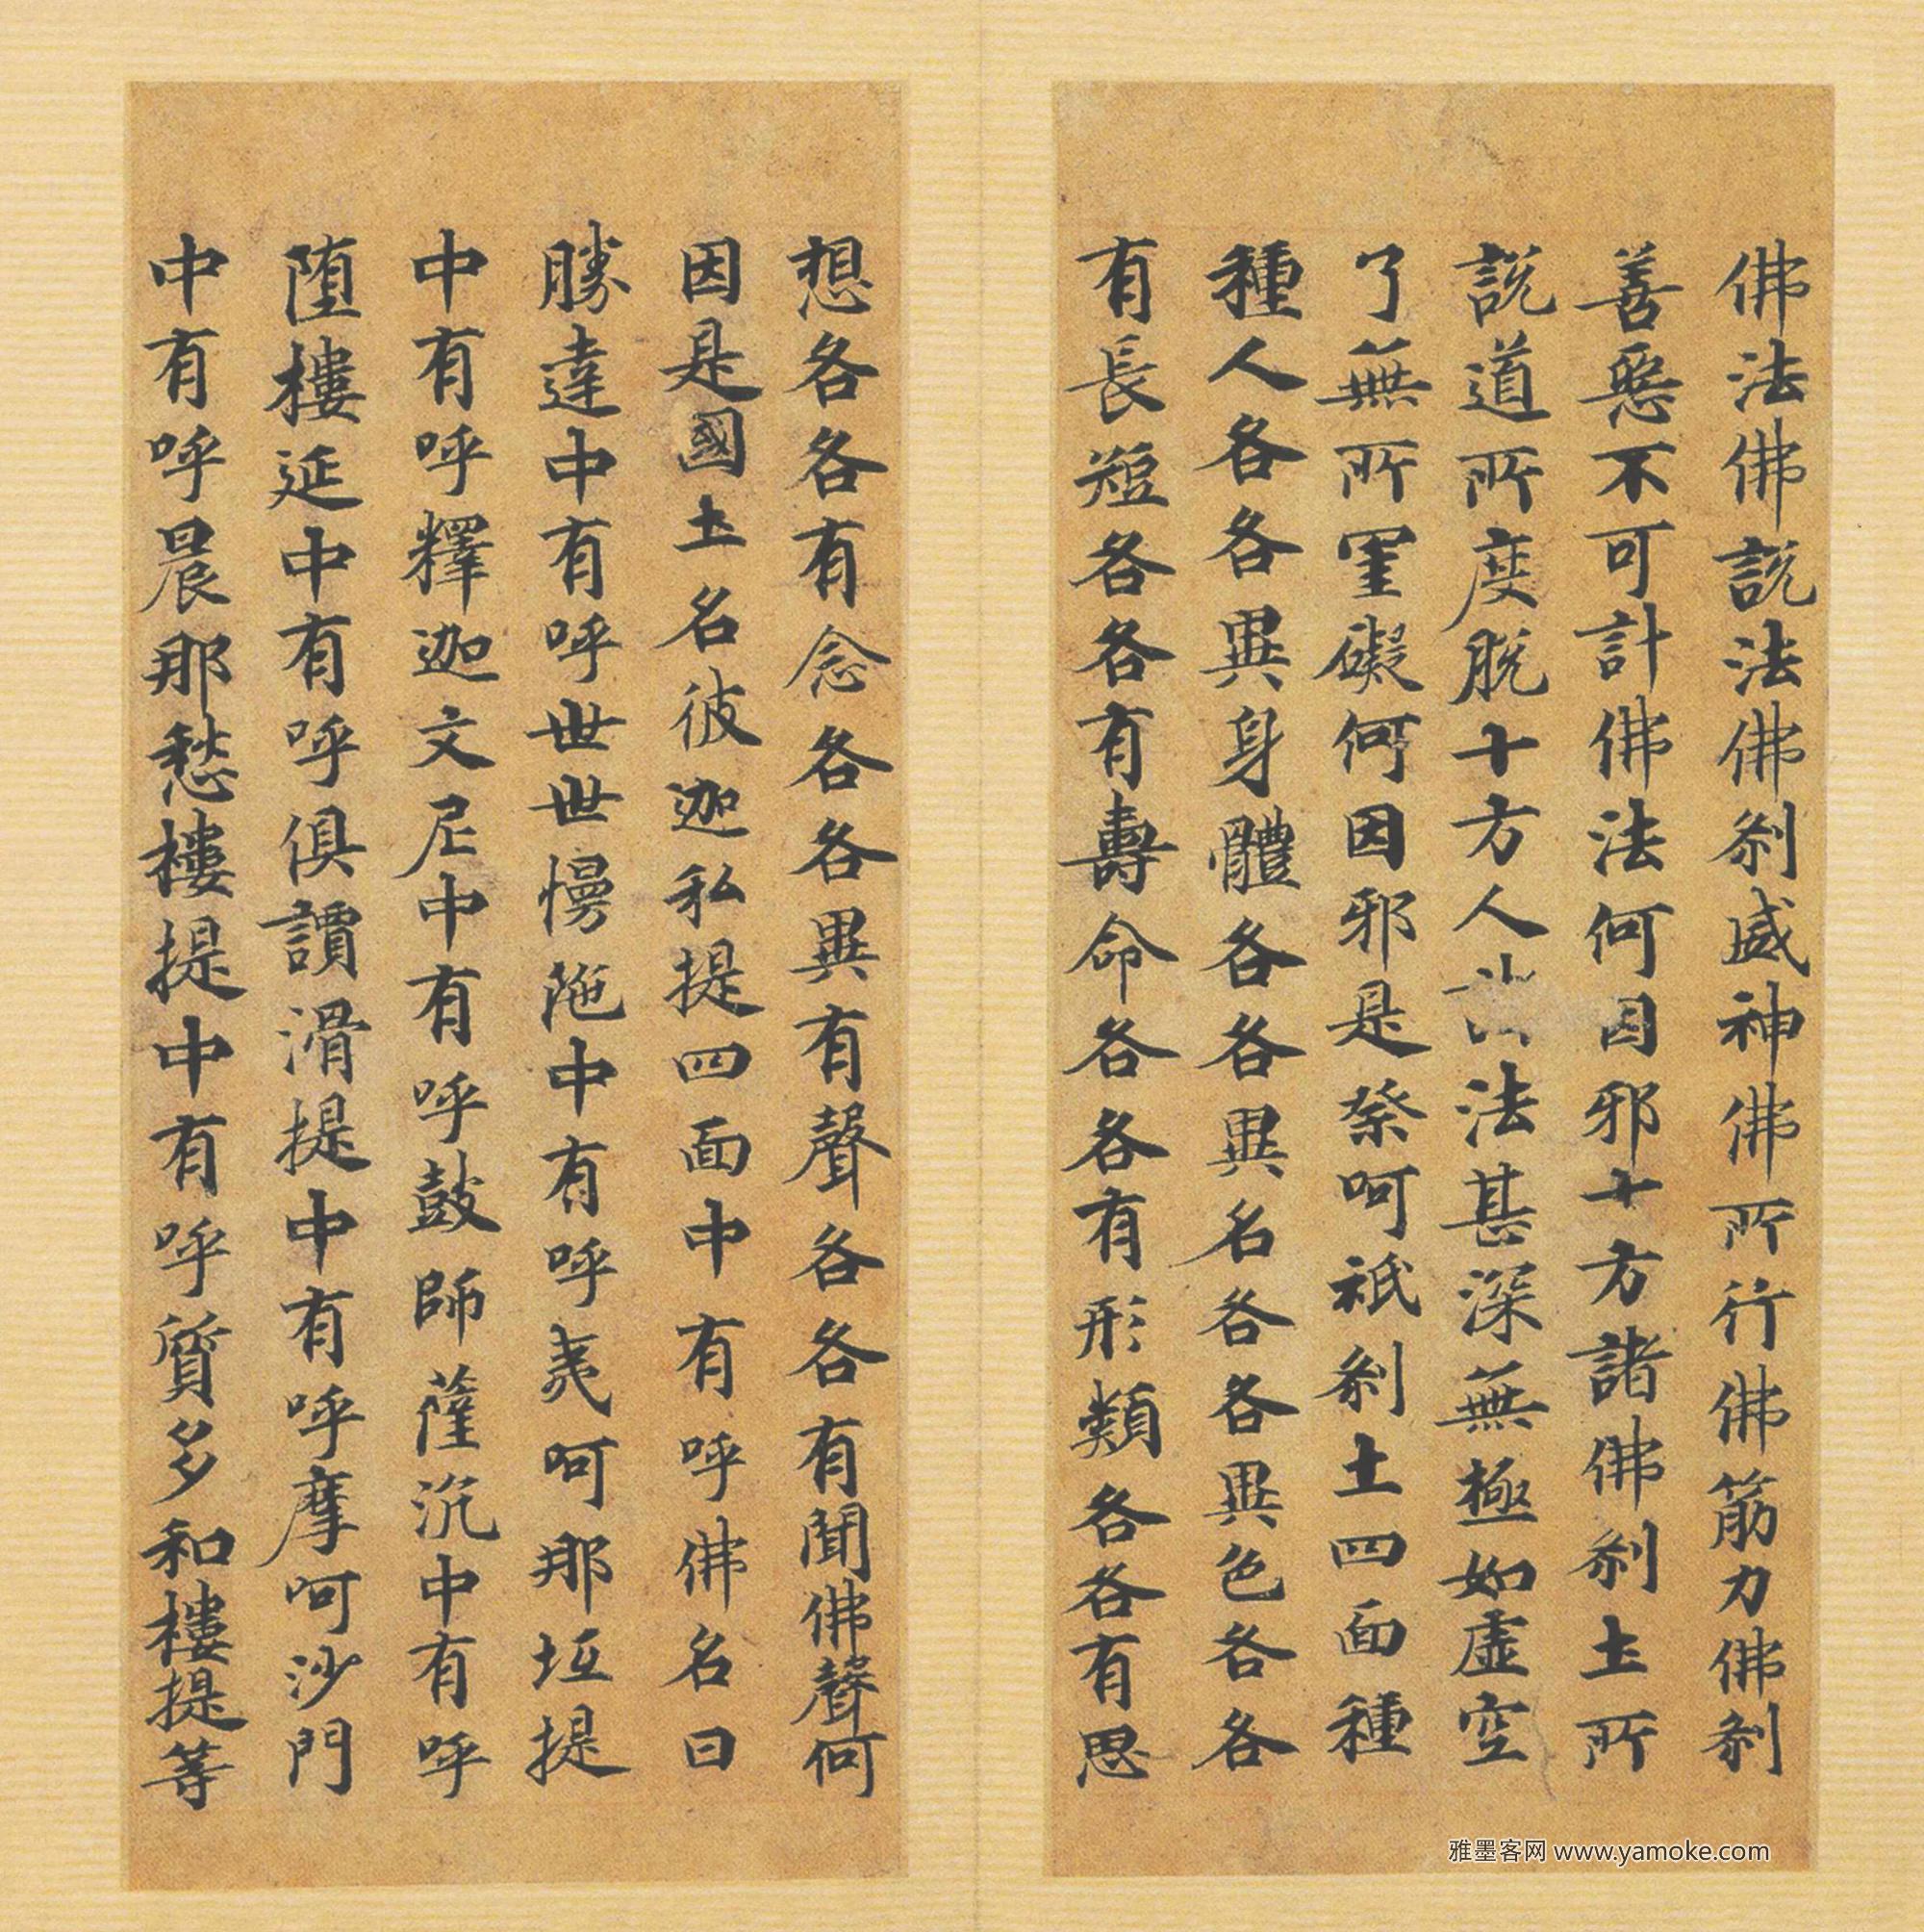 佛法佛説法佛刹威神佛所行佛筋力佛刹
善惡不可計佛法何因邪十方諸佛刹土所
説道所度脱十方人法甚深無極如虚空
了無所罣礙何因邪是祭呵祇刹土四面種
種人各各異身體各各異名各各異色各各
有長短各各有壽命各各有形類各各有思
想各各有念各各異有聲各各有聞佛聲何
因是國土名彼迦私提四面中有呼佛名曰
勝達中有呼世世慢陁中有呼夷呵那坘提
中有呼釋迦文尼中有呼鼓師薩沉中有呼
堕樓延中有呼俱讀滑提中有呼摩呵沙門
中有呼晨那愁樓提中有呼質多和樓提等
雅墨客网 www.yamoke.com